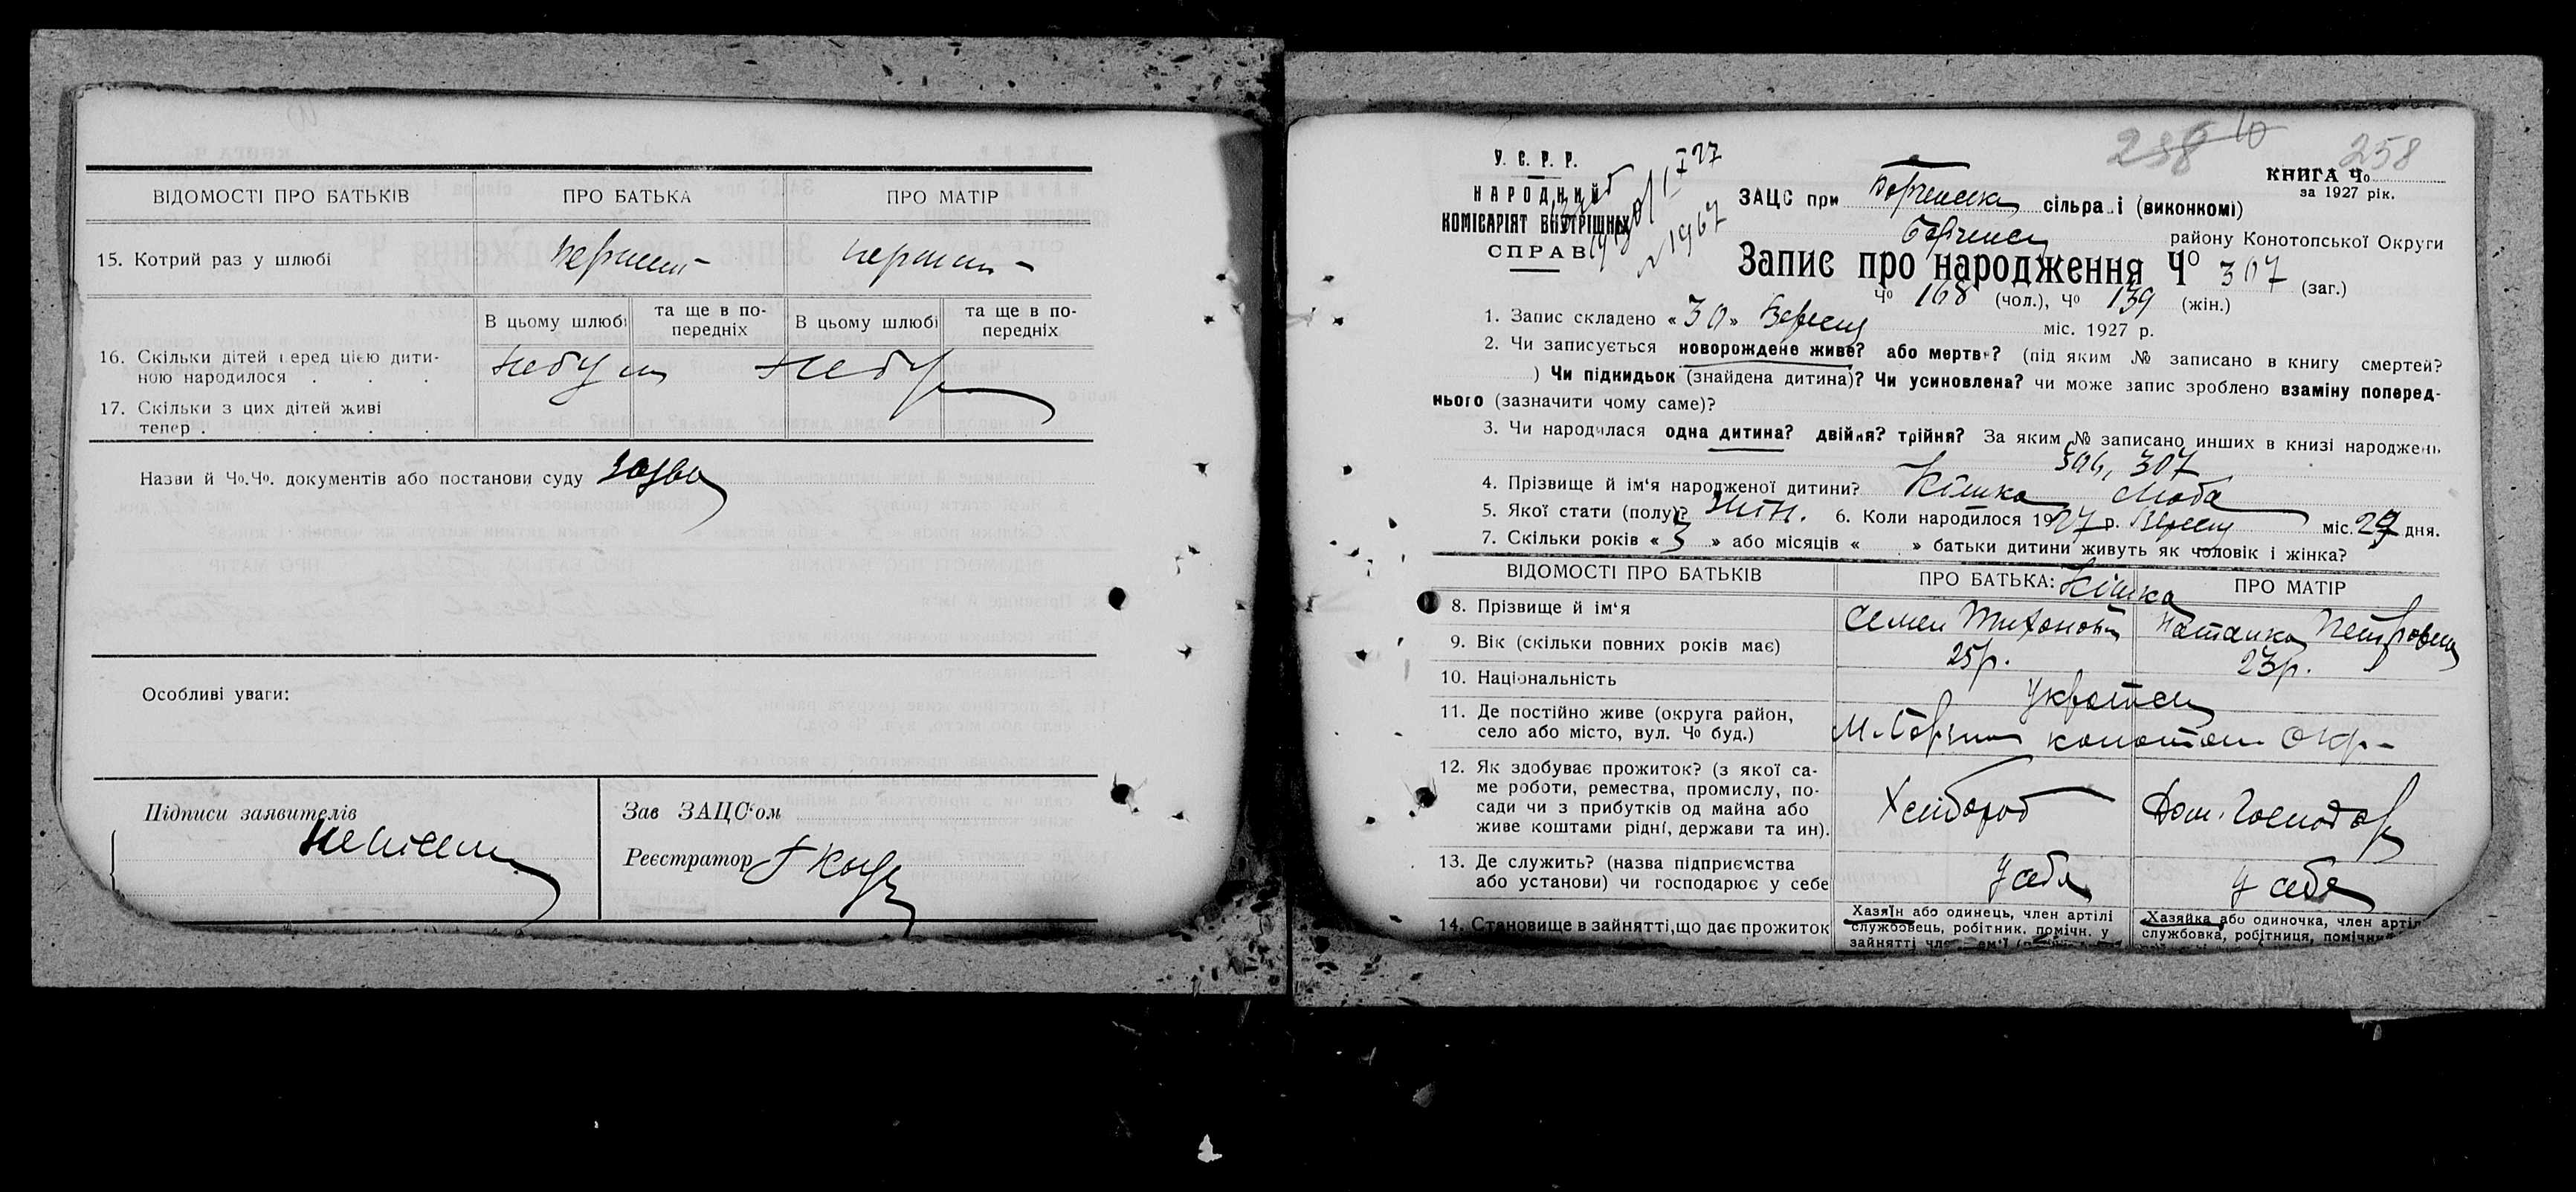 ВІДОМОСТІ ПРО БАТЬКІВ ПРО БАТЬКА ПРО МАТІР
15. Котрий раз у шлюбі
В цьому шлюбі та ще в по-передніх В цьому шлюбі та ще в по-передніх
16. Скільки дітей перед цією дити-
ною народилося . . .
17. Скільки з цих дітей живі
тепер . . . .
Назви й Чо.Чо. документів або постанови суду
Особливі уваги:
Підписи заявителів
Зав ЗАЦС'ом
Реєстратор
258
У. С. Р. Р.
НАРОДНИЙ
КОМІСАРІЯТ ВНУТРІШНІХ
СПРАВ
КНИГА Чо
за 1927 рік.
ЗАЦС при сільраді (виконкомі)
району Конотопської Округи
Запис про народження Чо 307 (заг.)
Чо 168 (чол.), Чо 139 (жін.)
1. Запис складено «30» Вересня міс. 1927 р.
2. Чи записується новорождене живе? або мертве? (під яким № записано в книгу смертей?
) Чи підкидьок (знайдена дитина)? Чи усиновлена? чи може запис зроблено взаміну поперед-
нього (зазначити чому саме)?
3. Чи народилася одна дитина? двійня? трійня? За яким № записано инших в книзі народжень
306, 307
4. Прізвище й ім'я народженої дитини? Кішка Люба
5. Якої стати (полу)? жін. 6. Коли народилося 1927 р. Вересня міс. 29 дня.
7. Скільки років «3» або місяців « » батьки дитини живуть як чоловік і жінка?
ВІДОМОСТІ ПРО БАТЬКІВ ПРО БАТЬКА: ПРО МАТІР
Кішка
8. Прізвище й ім'я Семен Тихонович Наталка Петровна
9. Вік (скільки повних років має) 25р. 23р.
10. Національність
11. Де постійно живе (округа район,
село або місто, вул. Чо буд.)
12. Як здобуває прожиток? (з якої са-
ме роботи, ремества, промислу, по-
сади чи з прибутків од майна або
живе коштами рідні, держави та ин). Хлібороб Дом. Господар
13. Де служить? (назва підприємства
або установи) чи господарює у себе у себя у себя
14. Становище в зайнятті, що дає прожиток
Хазяїн або одинець, член артілі
службовець, робітник, помічн. у
зайнятті
Хазяйка або одиночка, член артілі
службовка, робітниця,